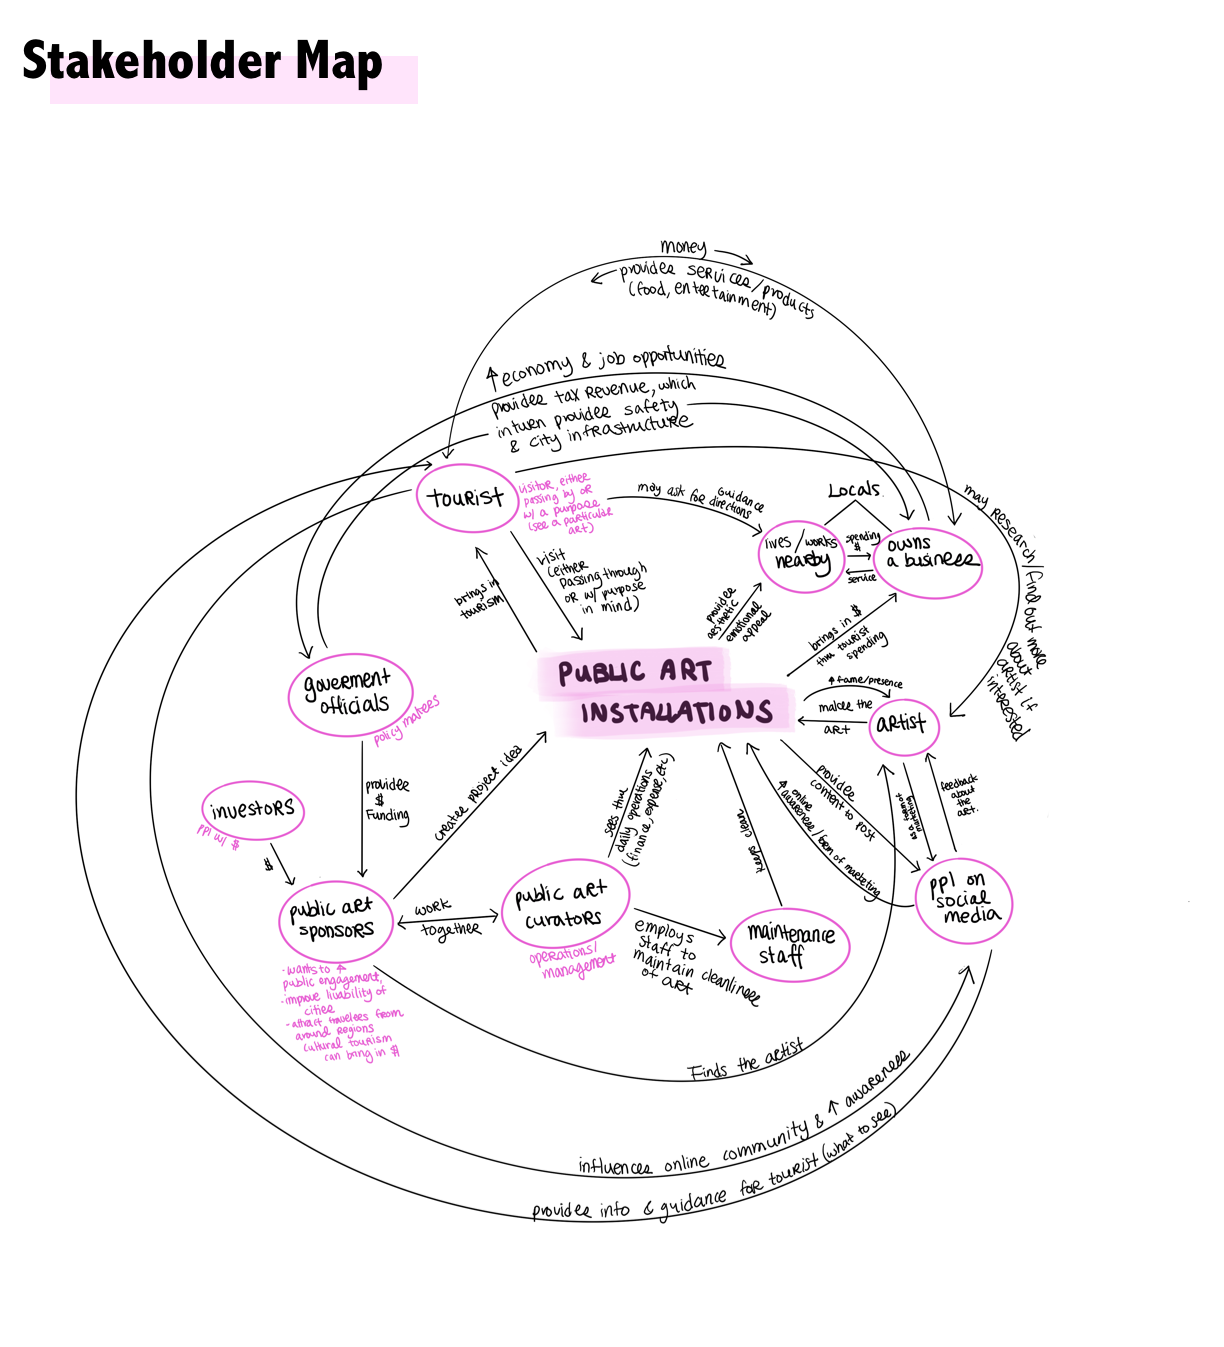 Stakeholder Map
money
provides services/products
(food, entertainment)
↑ economy & job opportunities
provides tax revenue, which
in turn provides safety
& city infrastructure
tourist
visitor, either
passing by or
w/ a purpose
(see a particular
art)
may ask for guidance
directions
Locals
lives / works
nearby
spending
$
service
owns
a business
may research/find out more
about
artist if
interested
visit
(either
passing through
or w/ purpose
in mind)
brings in
tourism
provides
aesthetic
emotional
appeal
brings in $
thru tourist
spending
PUBLIC ART
INSTALLATIONS
↑ fame/presence
makes the
art
artist
goverment
officials
policy makers
provides
$
Funding
investors
ppl w/ $
$
creates project idea
sees thru
daily operations
(finance, expense, etc)
keeps clean
provides
content to post
↑ online
awareness/form of marketing
as a form of
marketing
feedback
about
the
art.
public art
sponsors
- wants to ↑
public engagement,
- improve livability of
cities
- attract travelers from
around regions
cultural tourism
can bring in $
work
together
public art
curators
operations/
management
employs
staff to
maintain cleanliness
of art
maintenance
staff
ppl on
social
media
Finds the artist
influences online community & ↑ awareness
provides info & guidance for tourist (what to see)